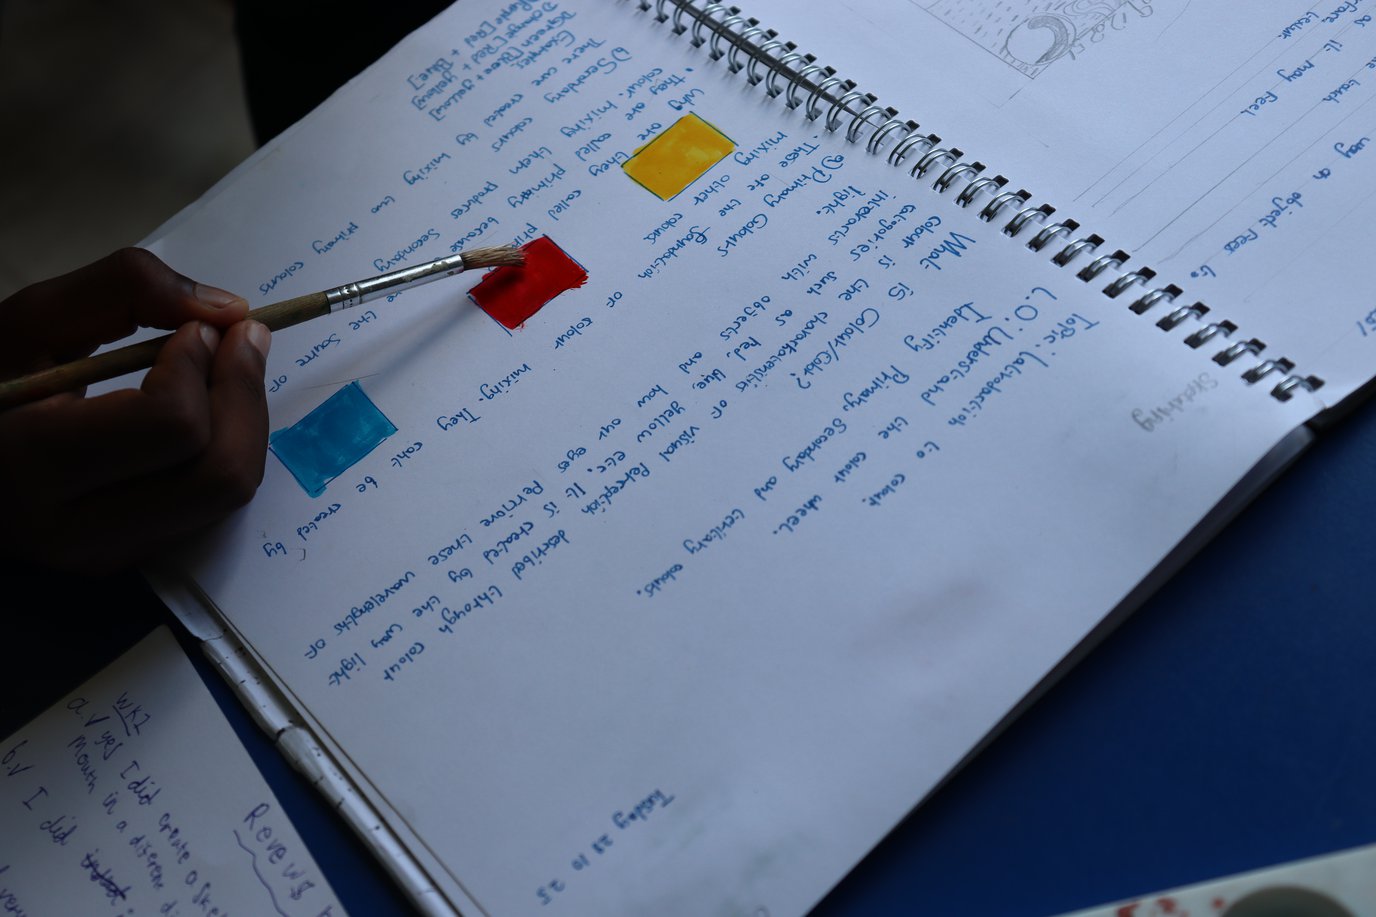 Tuesday 28 10 25
Topic: Introduction to colour.
L.O: Understand the colour wheel.
Identify Primary, Secondary and tertiary colours.
What is Colour/Color?
Colour is the characteristics of visual Perception described through colour
categories such as red, blue, yellow etc. It is created by the way light
interacts with objects and how our eyes Perceive these wavelengths of
light.
a) Primary Colours
• These are the foundation of colour mixing. They cant be created by
mixing other colours
Why are they called primary
• They are called because are the source of
colour mixing them produces Secondary
b) Secondary colours
These are created by mixing two primary colours
Examples
Green [Blue + yellow]
Orange [Red + yellow]
Purple [Red + Blue]
Sketching
as it may feel
way an object feels
Reviews
WK1
a. ✓ yes I did create a
mouth in a diferent
b. ✓ I did